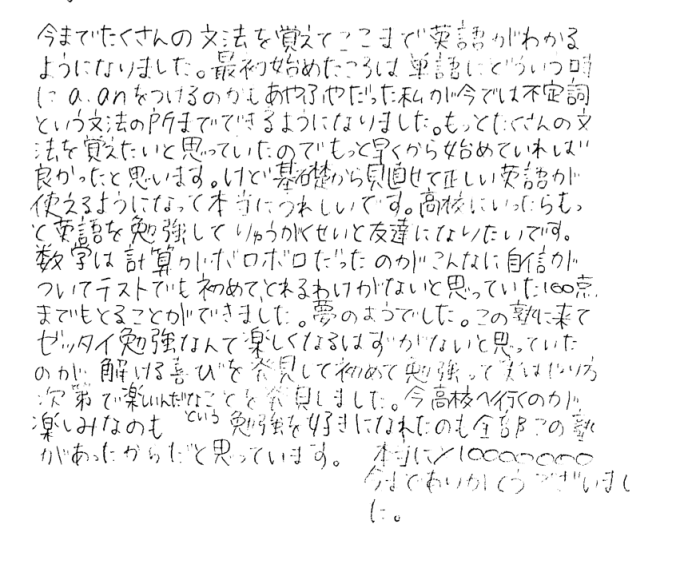 今までたくさんの文法を覚えてここまで英語がわかる
ようになりました。最初始めたころは単語にどういう時
に a.anをつけるのかもあやふやだった私が今では不定詞
という文法の所までできるようになりました。もっとたくさんの文
法を覚えたいと思っていたのでもっと早くから始めていれば
良かったと思います。けど基礎から見直せて正しい英語が
使えるようになって本当にうれしいです。高校にいったらもっ
と英語を勉強してりゅうがくせいと友達になりたいです。
数学は計算がボロボロだったのがこんなに自信が
ついてテストでも初めて、とれるわけがないと思っていた100点
までもとることができました。夢のようでした。この塾に来て
ゼッタイ勉強なんて楽しくなるはずがないと思っていた
のが解ける喜びを発見して初めて勉強って実はやり方
次第で楽しいんだなことを発見しました。今高校へ行くのが
楽しみなのも という 勉強を好きになれたのも全部この塾
があったからだと思っています。 本当に×10000000
今までありがとうございまし
た。